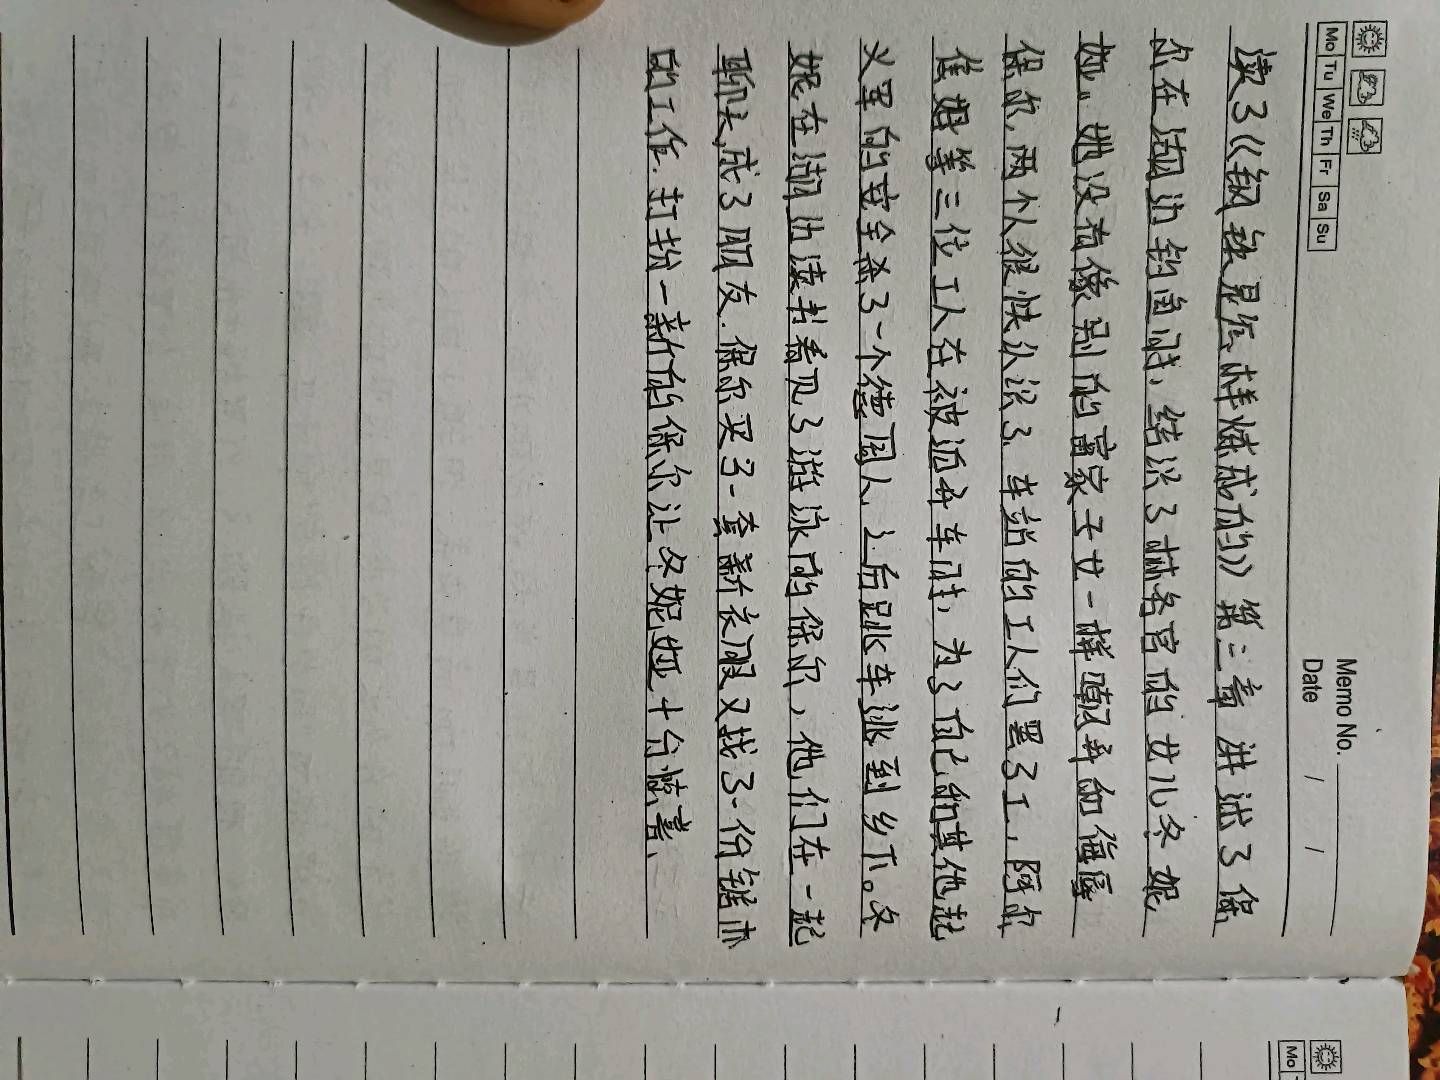 Mo Tu We Th Fr Sa Su
Memo No.
Date / /
读了《钢铁是怎样炼成的》第三章 讲述了保
尔在湖边钓鱼时,结识了林务官的女儿冬妮
娅。她没有像别的富家子女一样嘲弄和侮辱
保尔,两个人很快认识了.车站的工人们罢了工,阿尔
焦姆等三位工人在被迫开车时,为了自己和其他起
义军的安全杀了一个德国人,之后跳车逃到乡下。冬
妮在湖边读书看见了游泳的保尔,他们在一起
聊天,成了朋友.保尔买了一套新衣服又找了一份锯木
的工作.打扮一新的保尔让冬妮娅十分惊喜.
Mo